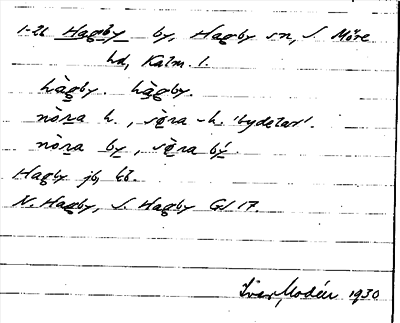 1-26 Hagby by, Hagby sn, S. Möre
hd, Kalm. l.
hàgby. hàgby.
nòra h., sø̀ra - h. 'bydelar'.
nòra by, sø̀ra bý.
Hagby jb, kb.
N. Hagby, S. Hagby Gl 17.
Ivar Modéer 1930